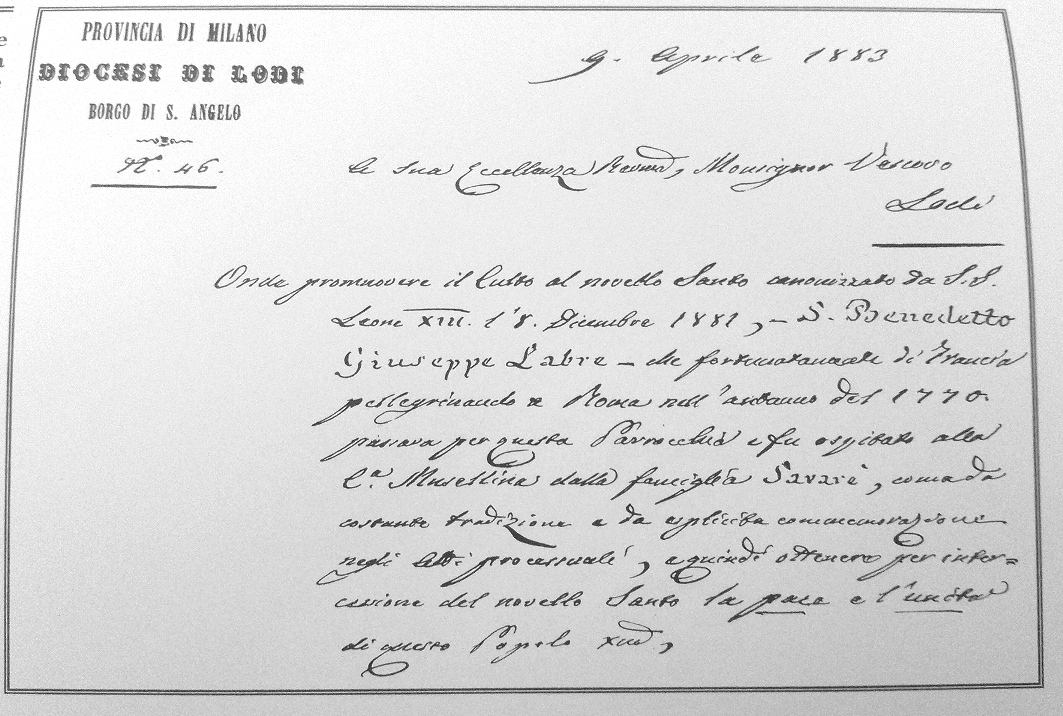 PROVINCIA DI MILANO
DIOCESI DI LODI
BORGO DI S. ANGELO
N. 46.
9. Aprile 1883
A Sua Eccellenza Revma, Monsignor Vescovo
Lodi
Onde promuovere il Culto al novello Santo canonizzato da S.S.
Leone XIII. l'8. Dicembre 1881, – S. Benedetto
Giuseppe Labre – che fortunatamente di Francia
pellegrinando a Roma nell'autunno del 1770.
passava per questa Parrocchia e fu ospitato alla
C.a Musellina dalla famiglia Savarè, come da
costante tradizione e da esplicita commemorazione
negli Atti processuali, e quindi ottenere per inter=
cessione del novello Santo la pace e l'unità
di questo Popolo xno,